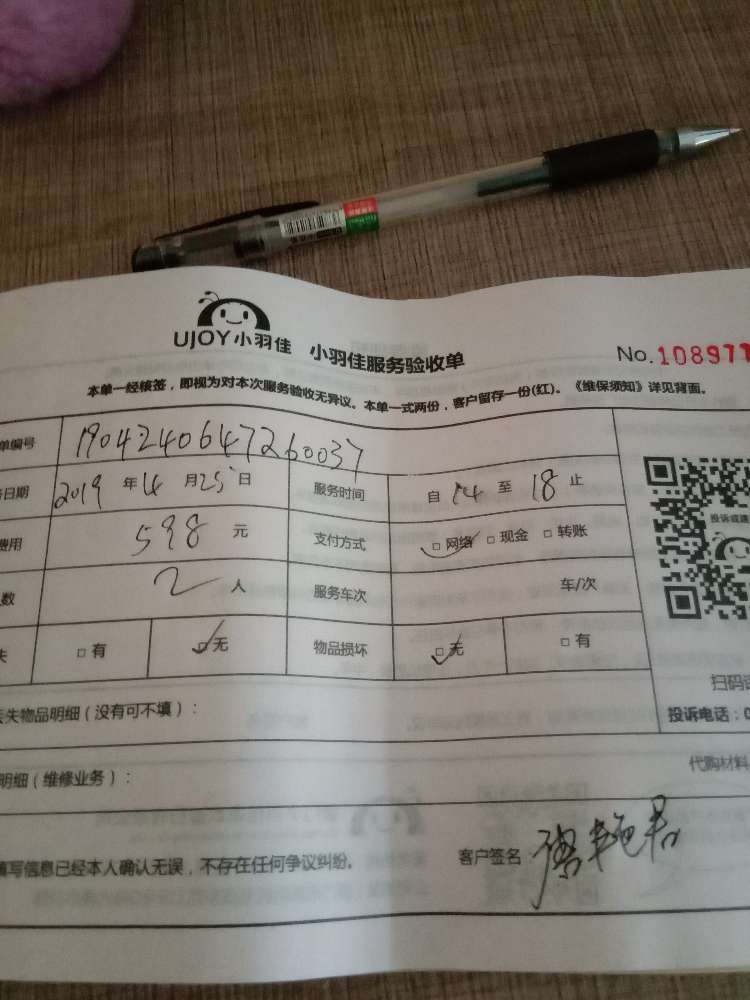 UJOY小羽佳 小羽佳服务验收单 No.108977
本单一经核签，即视为对本次服务验收无异议。本单一式两份，客户留存一份(红)。《维保须知》详见背面。
单编号 1904240647260037
日期 2019 年 4 月 25 日 服务时间 自 14 至 18 止
费用 598 元 支付方式 □网络 □现金 □转账
数 2 人 服务车次 车/次
失 □有 □无 物品损坏 □无 □有
投诉或建
扫码
丢失物品明细（没有可不填）：
投诉电话：0
明细（维修业务）：
代购材料
填写信息已经本人确认无误，不存在任何争议纠纷。
客户签名